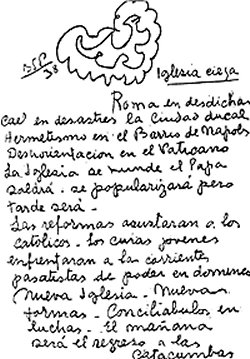 BSP
38
Iglesia ciega
Roma en desdichas
cae en desastres la ciudad ducal
Hermetismo en el Barrio de Napols
Desorientacion en el Vaticano
La Iglesia se hunde el Papa
saldrá. se popularizará pero
tarde será -
Las reformas asustaran a los
católicos - los curas jovenes
enfrentaran a las corrientes
pasatistas de poder en domines
Nueva Iglesia - Nuevas
formas - Conciliabulos en
luchas - El mañana
será el regreso a las
Catacumbas